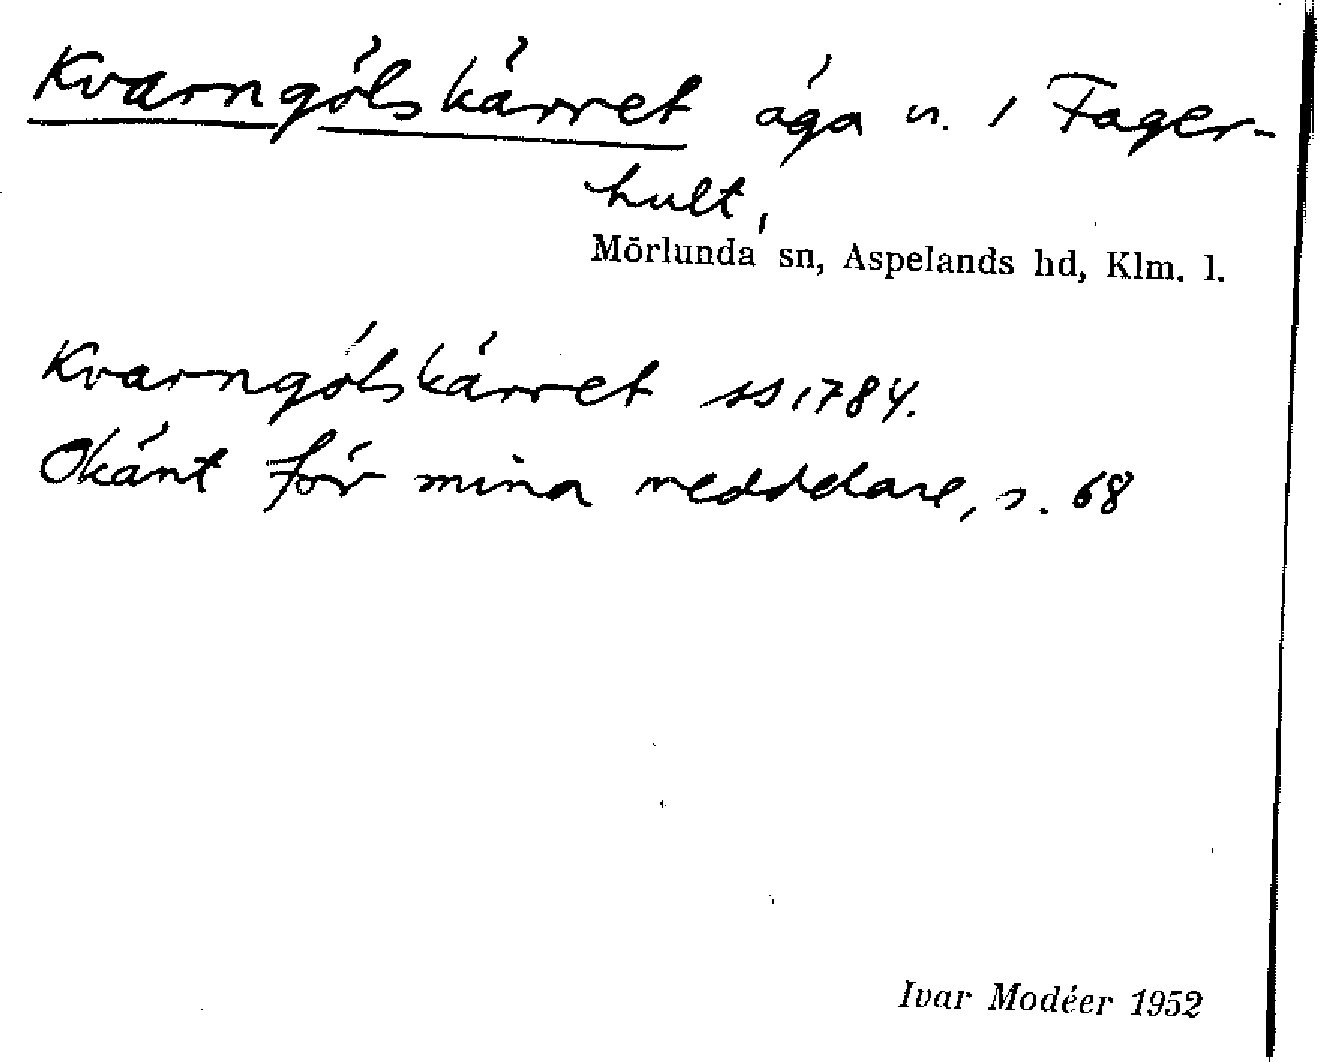 Kvarngölskärret äga u. 1 Fager-
hult,
Mörlunda sn, Aspelands hd, Klm. l.
Kvarngölskärret ss 1784.
Okänt för mina meddelare, s. 68
Ivar Modéer 1952